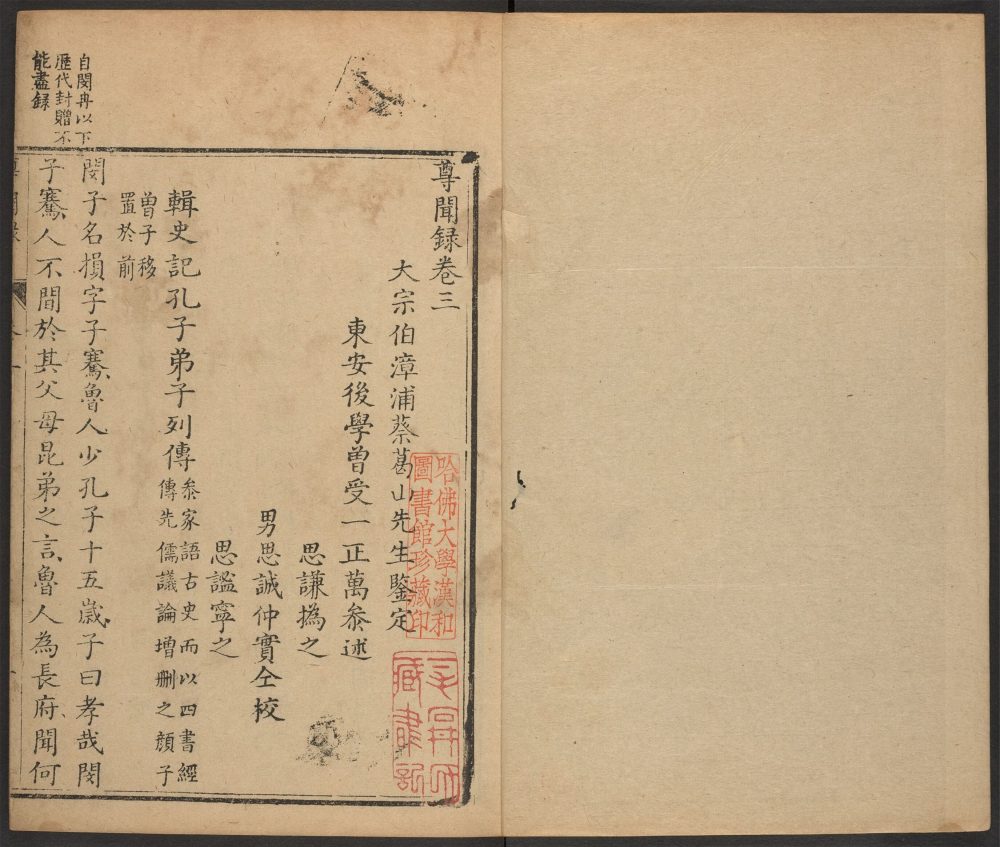 尊聞録卷三
大宗伯漳浦蔡葛山先生鑒定
東安後學曾受一正萬叅述
思謙撝之
男思誠仲實仝校
思謐寧之
輯史記孔子弟子列傳叅家語古史而以四書經
傳先儒議論增刪之顔子
曾子移
置於前
閔子名損字子騫魯人少孔子十五歲子曰孝哉閔
子騫人不間於其父母昆弟之言魯人為長府聞何
自閔冉以下
歷代封贈不
能盡録
哈佛大學漢和
圖書館珍藏印